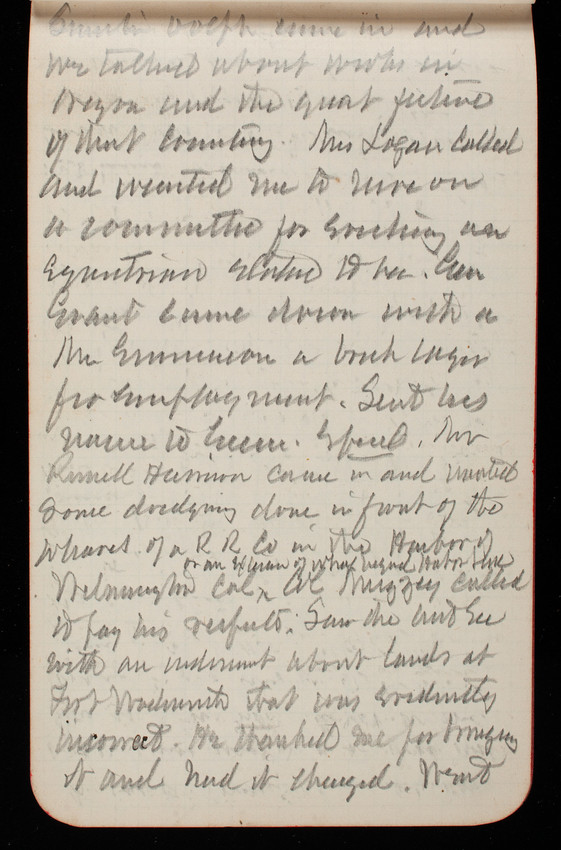 Senator Dolph came in and
we talked about works in
Oregon and the great future
of that Country. Mrs Logan called
and wanted me to serve on
a committee for erecting an
Equestrian statue to her. Gen
Grant came down with a
Mr a brick layer
for employment. Sent his
name to Green. Spiel. Mr
Russell Harrison came in and wanted
some dredging done in front of the
wharves of a R R Co in the Harbor of
or an Extension of Harbor Line
Wilmington Cal, Col Muzzey called
to pay his respects. Saw the Atty Gen
with an indorsement about lands at
Fort Wadsworth that was evidently
incorrect. He thanked me for bringing
it and had it changed. Went